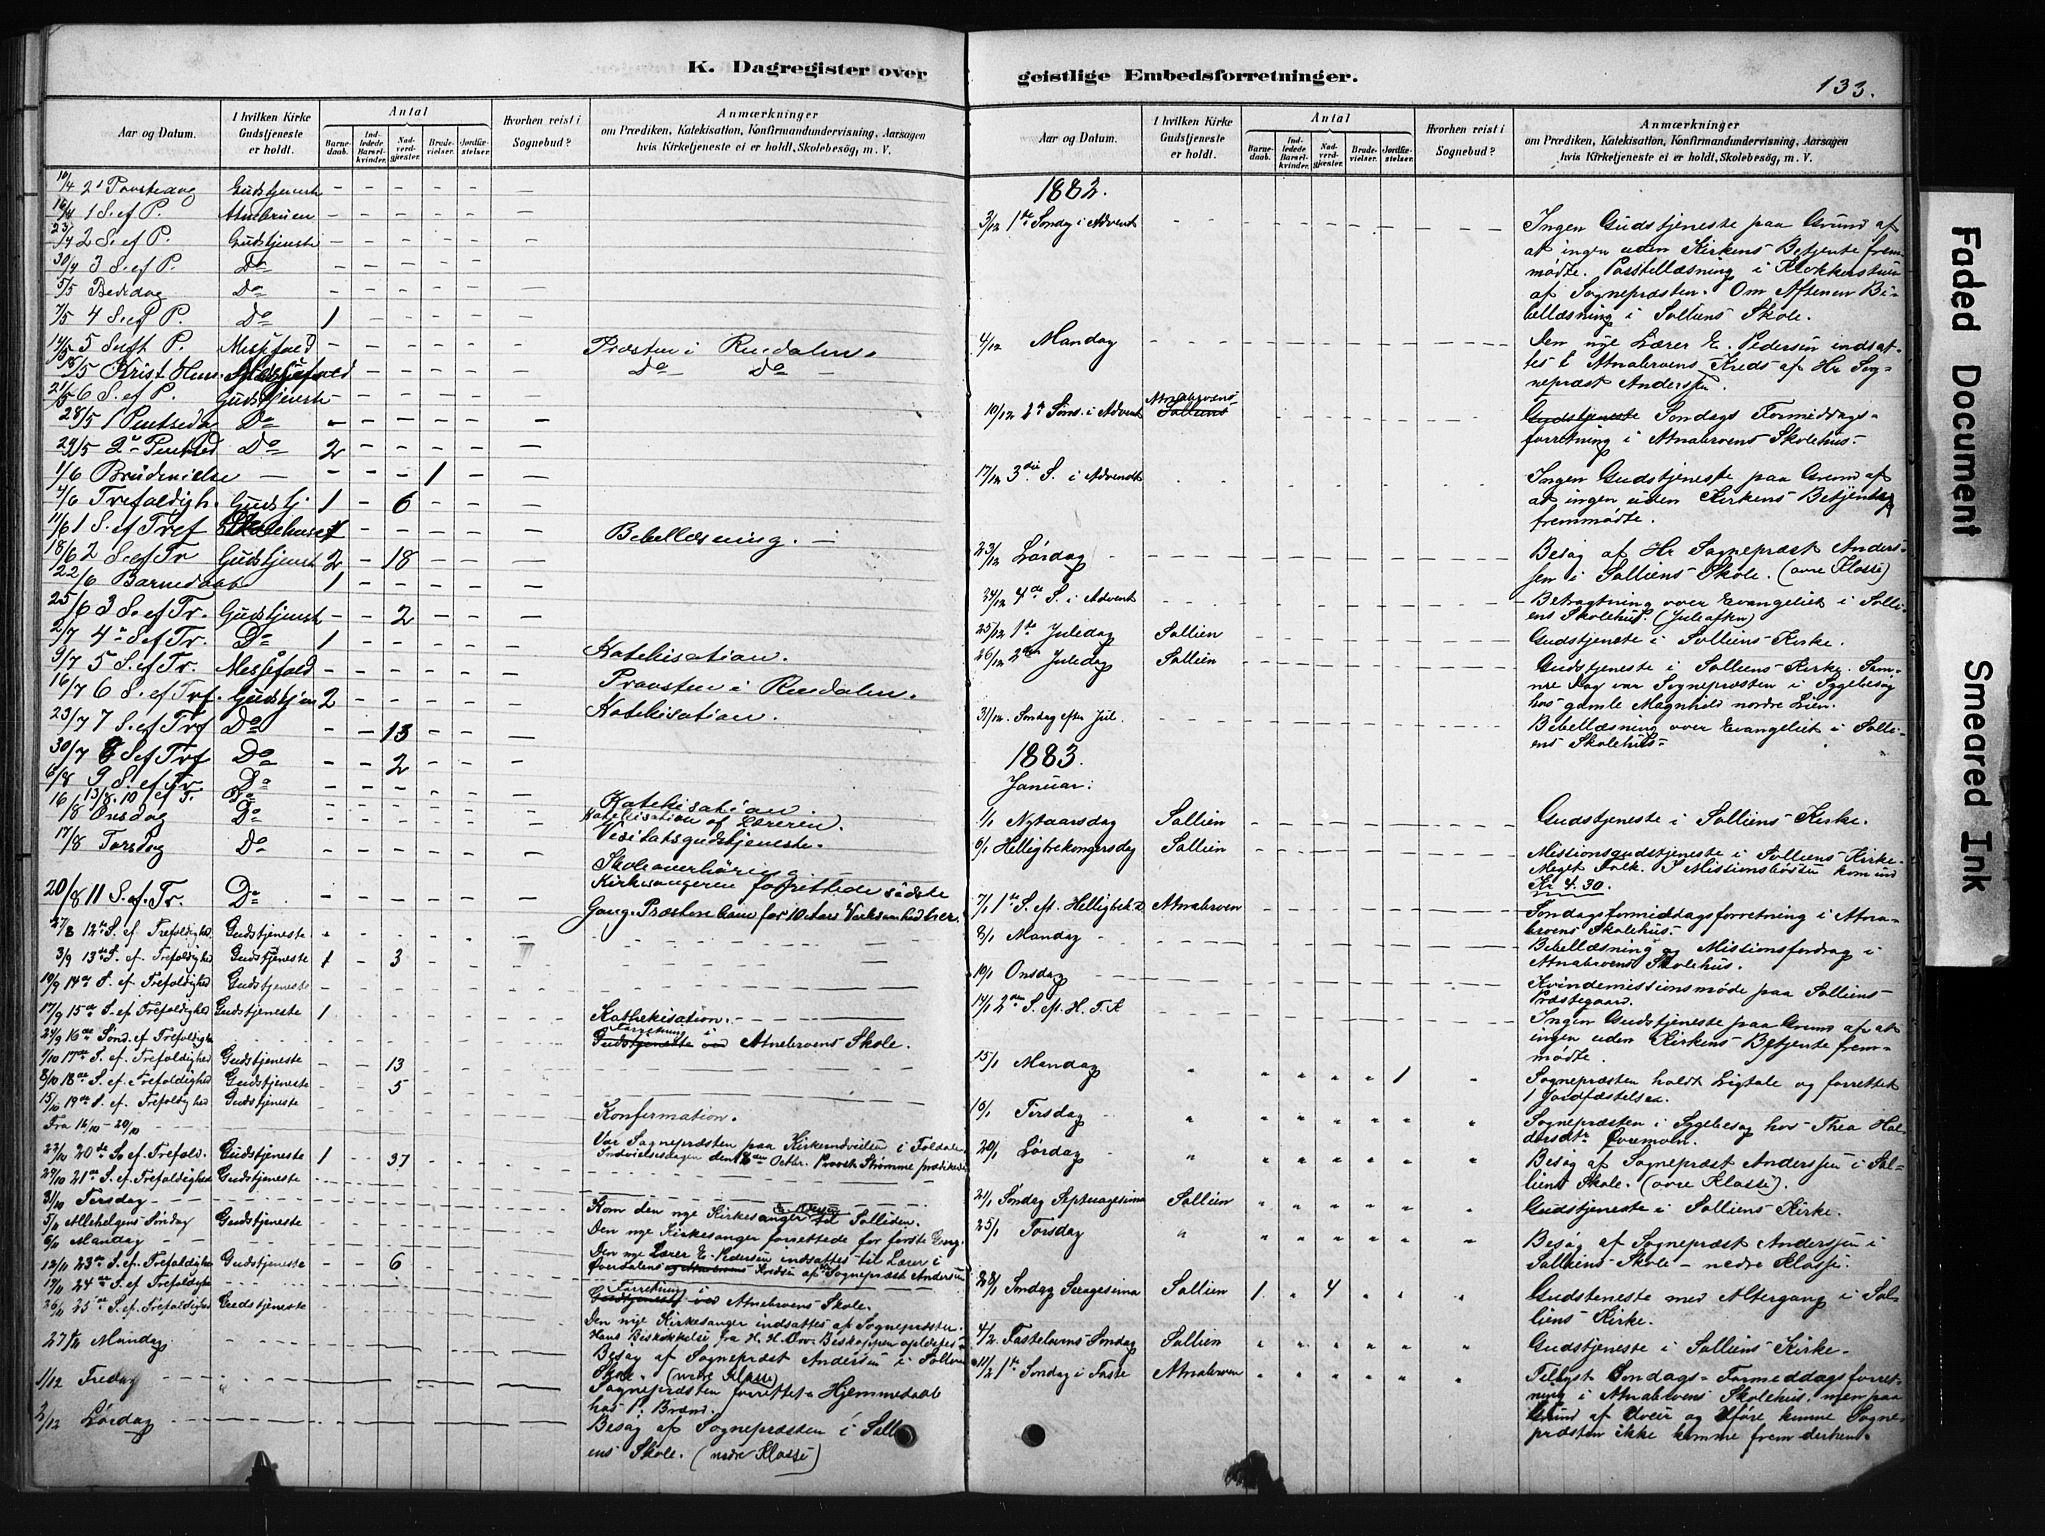 K. Dagregister over
Aar og Datum.
I hvilken Kirke Gudstjeneste er holdt.
Antal
Barne-daab.
Ind-ledede Barsel-kvinder.
Nad-verd-gjester.
Brude-vielser.
Jordfæ-stelser.
Hvorhen reist i Sognebud?
Anmærkninger
om Prædiken, Katekisation, Konfirmandundervisning, Aarsagen
hvis Kirketjeneste ei er holdt, Skolebesøg, m. V.
10/4 2' Paaskedag Gudstjenest - - - - - -
16/4 1 S. ef P. Atnebruen - - - - - -
23/4 2 S. ef P. Gudstjenste - - - - - -
30/4 3 S. ef P. Do - - - - - -
5/5 Bededag Do - - - - - -
7/5 4 S. ef P. Do 1 - - - - -
14/5 5 S. eft P. Messefald - - - - - - Præsten i Rendalen.
18/5 Krist Him. Messefald - - - - - - Do Do
21/5 6 S. ef P. Gudstjenest - - - - - -
28/5 1 Pintsedag Do - - - - - -
29/5 2 Pintsed Do 2 - - - - -
1/6 Brudevielse - - - - 1 - -
4/6 Trefoldigh. Gudstj 1 - 6 - - -
11/6 1 S. ef Tref Skolehuset - - - - - - Bibellæsning. -
18/6 2 S. ef Tr Gudstjenst 2 - 18 - - -
22/6 Barnedaab 1 - - - - -
25/6 3 S. ef Tr. Gudstjenst - - 2 - - -
2/7 4 S. ef Tr. Do 1 - - - - - Katekisation.
9/7 5 S. ef Tr. Messefald - - - - - - Præsten i Rendalen.
16/7 6 S. ef Trf. Gudstjen 2 - - - - - Katekisation.
23/7 7 S. ef Trf Do - - 13 - - -
30/7 8 S. ef Trf Do - - 2 - - -
6/8 9 S. ef Tr. Do - - - - - -
13/8 10 ef T. Do Katekisation.
16/8 Onsdag Do Katekisation af Læreren.
17/8 Torsdag Do Visitatsgudstjeneste.
Skoleoverhöring
20/8 11 S. ef. Tr. Do - - - - - - Kirkesangeren forrettede sidste
Gang. Præsten kom for 10 Aars Virksomhed her.
27/8 12te S. ef Trefoldighed Gudstjeneste
3/9 13de S. ef. Trefoldighed Gudstjeneste 1 - 3 - - -
10/9 14de S. ef Trefoldighed Gudstjeneste
17/9 15de S. ef Trefoldighed Gudstjeneste 1 - - - - - Kathekisation.
24/9 16de Sønd. ef Trefoldighed Forretning i
Gudstjeneste ved Atnebroens Skole.
1/10 17de S. ef. Trefoldighed Gudstjeneste - - 13 - - -
8/10 18de S. ef. Trefoldighed Gudstjeneste - - 5 - - -
15/10 19de S. ef. Trefoldighed Gudstjeneste Konfirmation.
Fra 16/10 - 20/10 Var Sognepræsten paa Kirkeindvielsen i Foldalen
Indvielsesdagen den 18de Octbr. Provst Strømme prædikede
22/10 20de S. ef Trefold. Gudstjeneste 1 - 37 - - -
29/10 21de S. ef. Trefoldighed Gudstjeneste
31/10 Tirsdag Kom den nye Kirkesanger til Solliden.
5/11 Allehelgens Søndag Gudstjeneste Den nye Kirkesanger forrettede for første Gang.
6/11 Mandag Den nye Lærer E. Pedersen indsattes til Lærer i
12/11 23de S. ef. Trefoldighed Gudstjeneste - - 6 - - - Øverdalens og Atnabroens Kredse af Sognepræst Andersen
19/11 24de S. ef Trefoldighed Forretning i
Gudstjeneste ved Atnebroens Skole.
26/11 25de S. ef. Trefoldighed Gudstjeneste Den nye Kirkesanger indsattes af Sognepræsten.
Hans Biskokkelse fra H. H. Hr. Biskoppen oplæstes
27/11 Mandag Besøg af Sognepræst Andersen i Sollien
Skole. (nedre Klasse)
1/12 Fredag Sognepræsten forrettet Hjemmedaab
hos P. Brænd.
2/12 Lördag Besøg af Sognepræsten i Solli
ens Skole. (nedre Klasse)
geistlige Embedsforretninger.
133.
Aar og Datum.
I hvilken Kirke Gudstjeneste er holdt.
Antal
Barne-daab.
Ind-ledede Barsel-kvinder.
Nad-verd-gjester.
Brude-vielser.
Jordfæ-stelser.
Hvorhen reist i Sognebud?
Anmærkninger
om Prædiken, Katekisation, Konfirmandundervisning, Aarsagen
hvis Kirketjeneste ei er holdt, Skolebesøg, m. V.
1882.
3/12 1ste Søndag i Advent Ingen Gudstjeneste paa Grund af
at ingen uden Kirkens Betjente frem-
mødte. Postillæsning i Klokkerstuen
af Sognepræsten. Om Aftenen Bi-
bellæsning i Solliens Skole.
4/12 Mandag Den nye Lærer E. Pedersen indsat-
tes i Atnabroens Kreds af Hr Sog-
nepræst Andersen.
10/12 2de Sønd. i Advent Atnabroens Solliens Gudstjeneste Søndags Formiddags-
forretning i Atnabroens Skolehus.
17/12 3die S. i Advendt Ingen Gudstjeneste paa Grund af
at ingen uden Kirkens Betjente
fremmødte.
23/12 Lørdag Besøg af Hr Sognepræst Anders-
sen i Solliens Skole. (øvre Klasse)
24/12 4de S. i Advent Betragtning over Evangeliet i Solli-
ens Skolehus. (Juleaften)
25/12 1ste Juledag Sollien Gudstjeneste i Solliens Kirke.
26/12 2den Juledag Sollien Gudstjeneste i Solliens Kirke. Sam-
me Dag var Sognepræsten i Sygebesøg
hos gamle Magnhild nordre Lien.
31/12. Søndag efter Jul. Bibellæsning over Evangeliet i Solli-
ens Skolehus.
1883.
Januar:
1/1 Nytaarsdag Sollien Gudstjeneste i Solliens Kirke.
6/1 Helligtrekongersdag Sollien Missionsgudstjeneste i Solliens Kirke.
Meget Folk. I Missionsbøssen kom ind
Kr 4.30.
7/1 1ste S. eft. Helligtrek.d Atnabroen Søndagsformiddagsforretning i Atna-
broens Skolehus.
8/1 Mandag Bibellæsning og Missionsfordrag i
Atnabroens Skolehus.
10/1 Onsdag Kvindemissionsmøde paa Solliens
Præstegaard.
14/1 2den S. eft. H. T. K Ingen Gudstjeneste paa Grund af at
ingen uden Kirkens Betjente frem-
mødte.
15/1 Mandag 1 Sognepræsten holdt Ligtale og forrettet
1 Jordfæstelse.
16/1 Tirsdag Sognepræsten i Sygebesøg hos Thea Hal-
dorsdtr Øvremoen.
20/1 Lørdag Besøg af Sognepræst Anderssen i Sol-
liens Skole. (øvre Klasse).
21/1 Søndag Septuagesima Sollien Gudstjeneste i Solliens Kirke.
25/1 Torsdag Besøg af Sognepræst Anderssen i
Solliens Skole - nedre Klasse.
28/1 Søndag Sexagesima Sollien 1 " 4 Gudsteneste med Altergang i Sol-
liens Kirke.
4/2 Fastelavns Søndag Sollien Gudstjeneste i Solliens Kirke.
11/2 1ste Søndag i Faste Atnabroen Tillyst Søndags-Formeddagsforret-
ning i Atnabroens Skolehus, men paa
Grund af Uveir og Uføre kunne Sogne-
præsten ikke komme frem derhen.
Faded Document
Smeared Ink